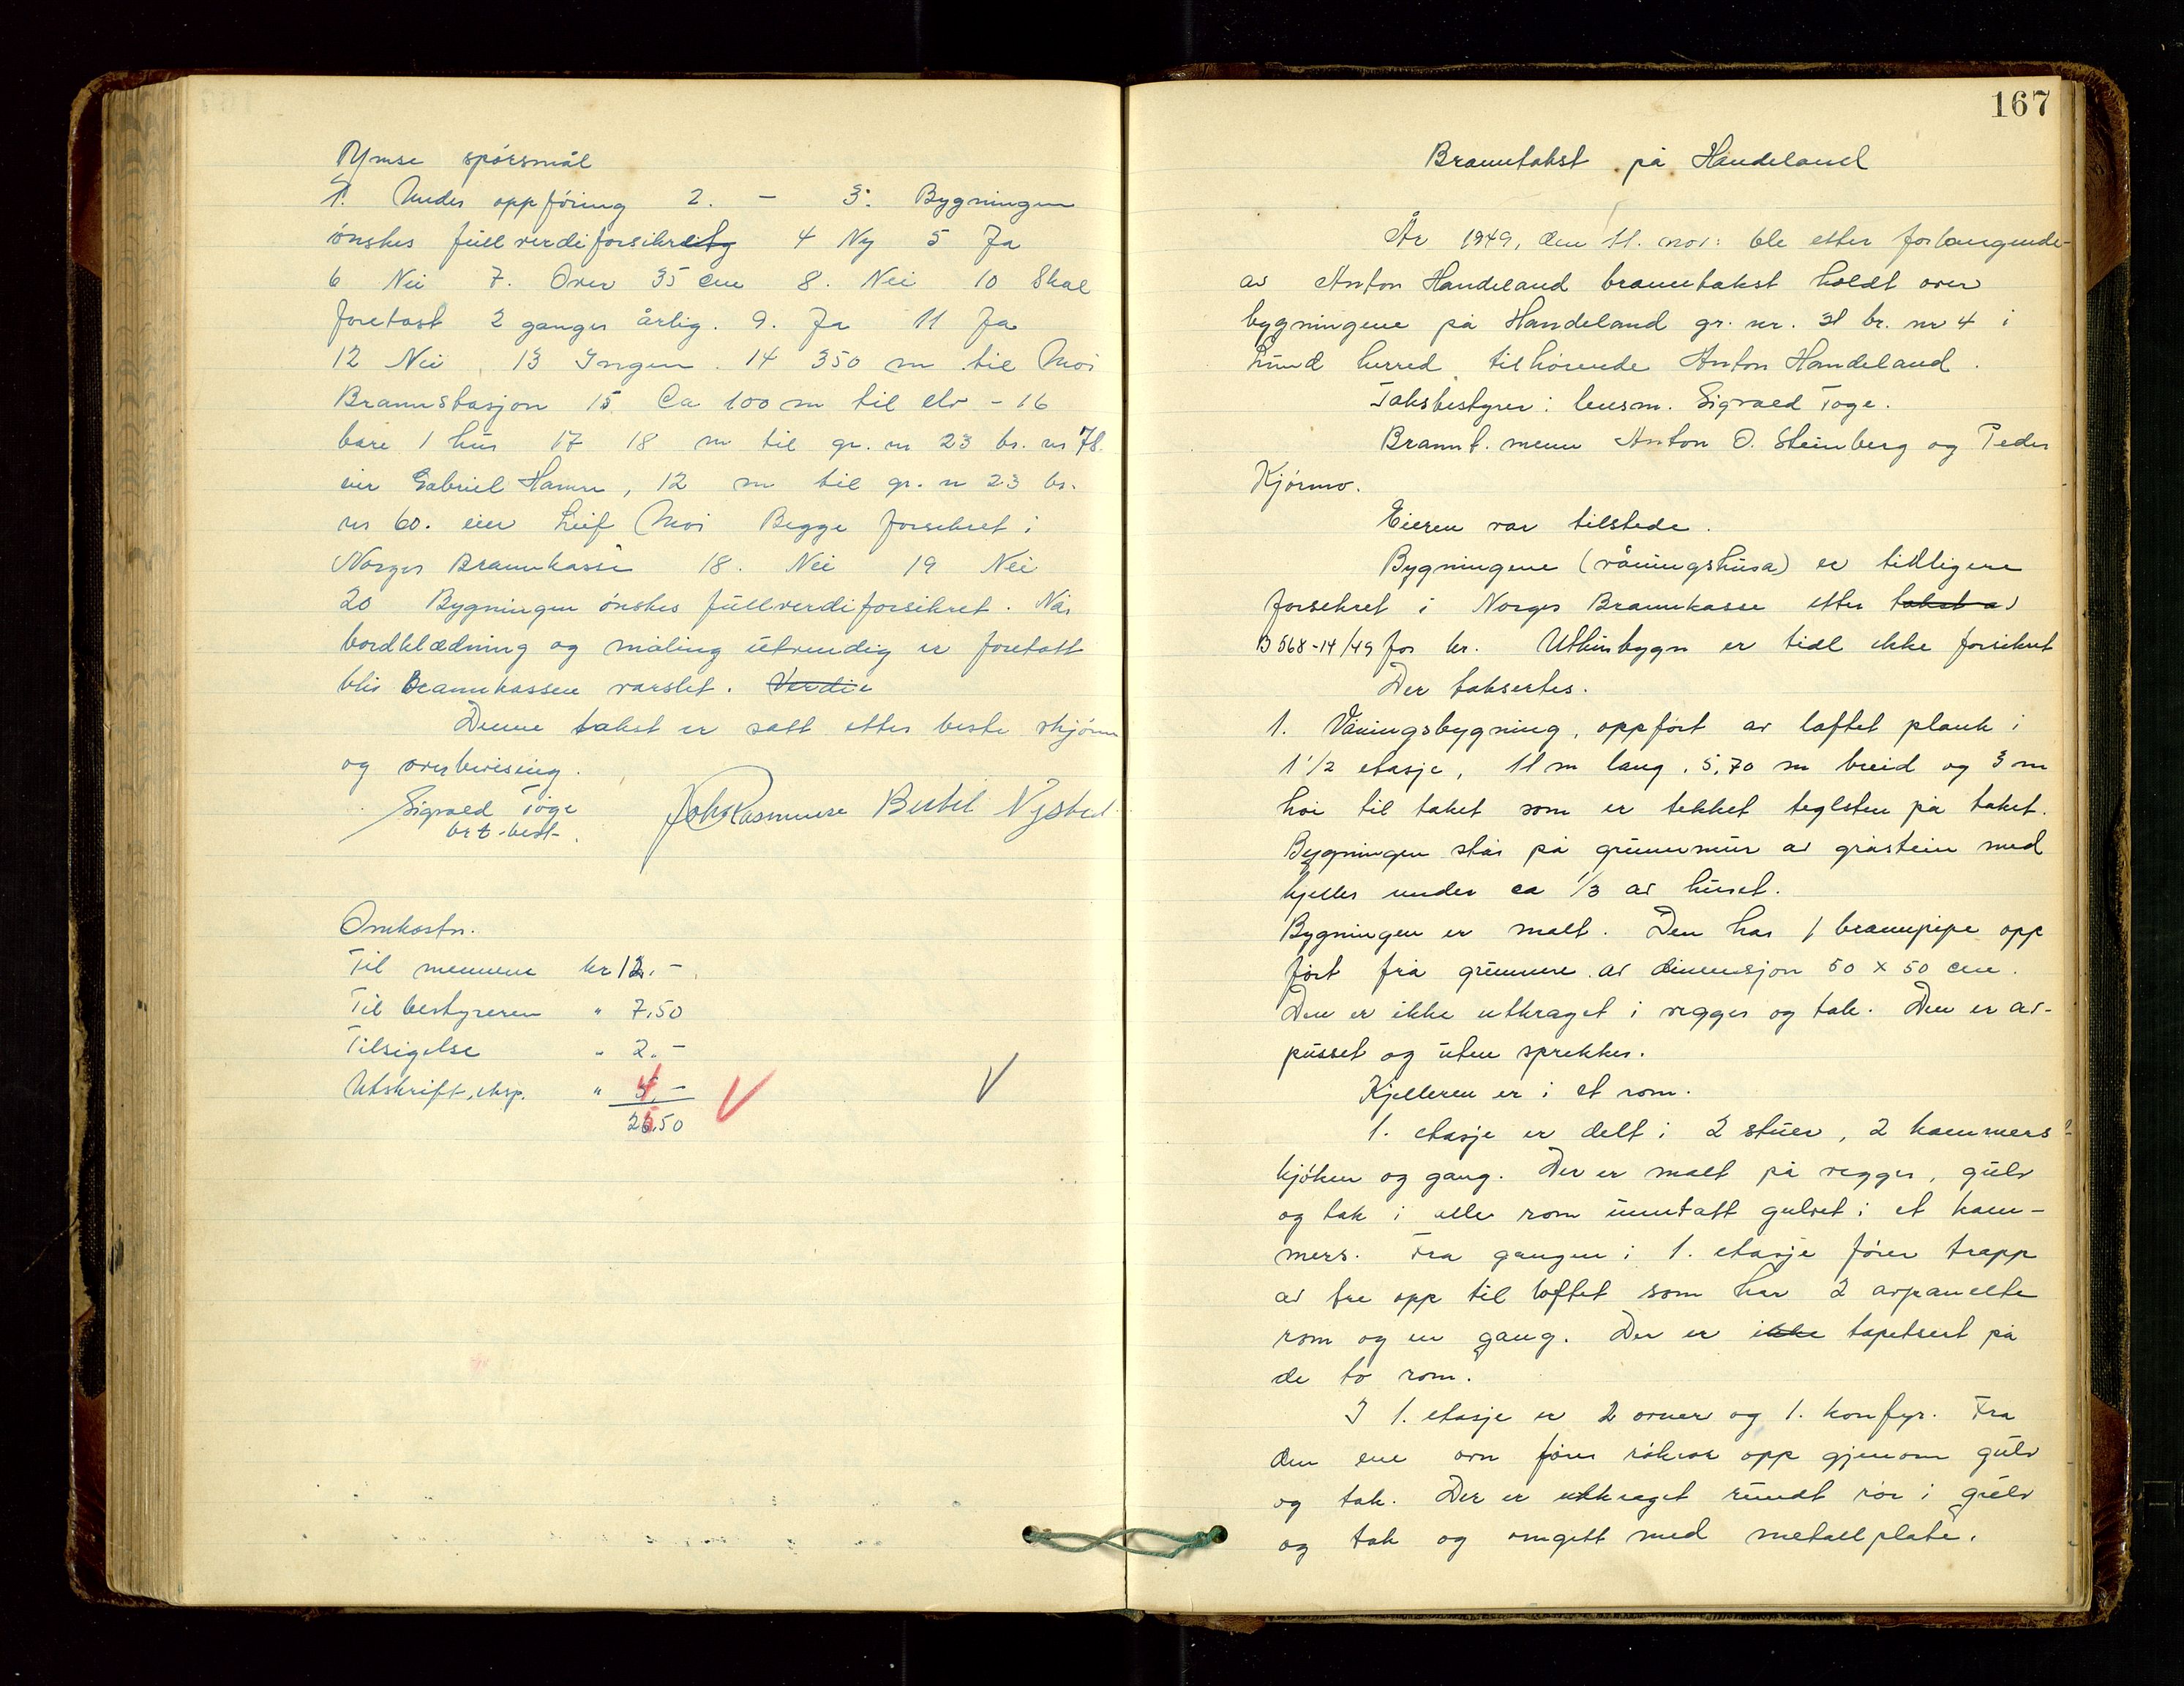 Ymse spørsmål
1. Under oppføring 2. - 3. Bygningen
ønskes fullverdiforsikret 4 Ny 5 Ja
6 Nei 7. Over 35 cm 8. Nei 10 Skal
foretast 2 ganger årlig. 9. Ja 11 Ja
12 Nei 13 Ingen. 14 350 m til Moi
Brannstasjon 15 Ca 100 m til elv - 16
bare 1 hus 17 18 m til gr. nr 23 br. nr 78.
eier Gabriel Hamre, 12 m til gr. n 23 br.
nr 60. eier Leif Moi Begge forsikret i
Norges Brannkasse 18. Nei 19 Nei
20 Bygningen ønskes fullverdiforsikret. Når
bordklædning og maling utvendig er foretatt
blir Brannkassen varslet. Verdie
Denne takst er satt etter beste skjønn
og overbevising.
Sigvald Tøge Joh Rasmussen Bertil Nysted
br t-best-.
Omkostn.
Til mennene kr 12.-
Til bestyreren " 7,50
Tilsigelse " 2.-
Utskrift, eksp. " 4.-
25.50
167
Branntakst på Handeland
År 1949, den 11. nov: ble etter forlangende
av Anton Handeland branntakst holdt over
bygningene på Handeland gr. nr. 31 br. nr 4 i
Lund herred tilhørende Anton Handeland.
Taksbestyrer: lensm. Sigvald Tøge.
Brannt. menn Anton O. Steinberg og Peder
Kjørmo.
Eieren var tilstede.
Bygningene (våningshusa) er tidligere
forsikret i Norges Brannkasse etter takst av
B 568-14/49 for kr. Uthusbygn er tidl ikke forsikret
Der taksertes.
1. Våningsbygning, oppført av laftet plank i
1 1/2 etasje, 11 m lang, 5,70 m breid og 3 m
høi til taket som er tekket teglsten på taket.
Bygningen står på grunnmur av gråstein med
kjeller under ca 1/3 av huset.
Bygningen er malt. Den har 1 brannpipe opp
ført frå grunnen av dimensjon 50 x 50 cm.
Den er ikke utkraget i vegger og tak. Den er av-
pusset og uten sprekker.
Kjelleren er i et rom.
1. etasje er delt i 2 stuer, 2 kammers
kjøken og gang. Der er malt på vegger, gulv
og tak i alle rom unntatt gulvet i et kam-
mers. Fra gangen i 1. etasje fører trapp
av tre opp til loftet som har 2 avpanelte
rom og en gang. Der er ikke tapetsert på
de to rom.
I 1. etasje er 2 ovner og 1. komfyr. Fra
den ene ovn fører røkrør opp gjenom gulv
og tak. Der er utkraget rundt rør i gulv
og tak og omgitt med metallplate.